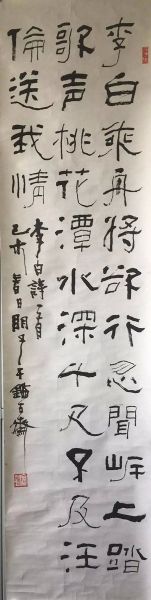 李白乘舟將欲行忽聞岸上踏
歌声桃花潭水深千尺不及汪
倫送我情
李白詩一首
己亥春日于齋